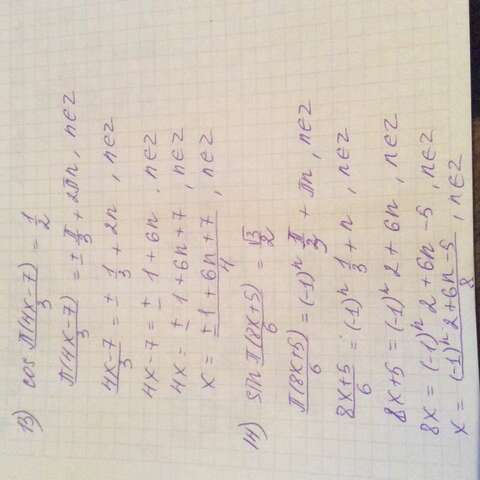 13) cos π(4x-7)/3 = 1/2
π(4x-7)/3 = ± π/3 + 2πn, n∈z
4x-7/3 = ± 1/3 + 2n , n∈z
4x-7 = ± 1+6n , n∈z
4x = ± 1+6n+7 , n∈z
x = ±1+6n+7/4 , n∈z
14) sin π(8x+5)/6 = √3/2
π(8x+5)/6 = (-1)ⁿ π/3 + πn, n∈z
8x+5/6 = (-1)ⁿ 1/3 + n , n∈z
8x+5 = (-1)ⁿ 2 + 6n , n∈z
8x = (-1)ⁿ 2 + 6n - 5 , n∈z
x = (-1)ⁿ 2+6n-5/8 , n∈z